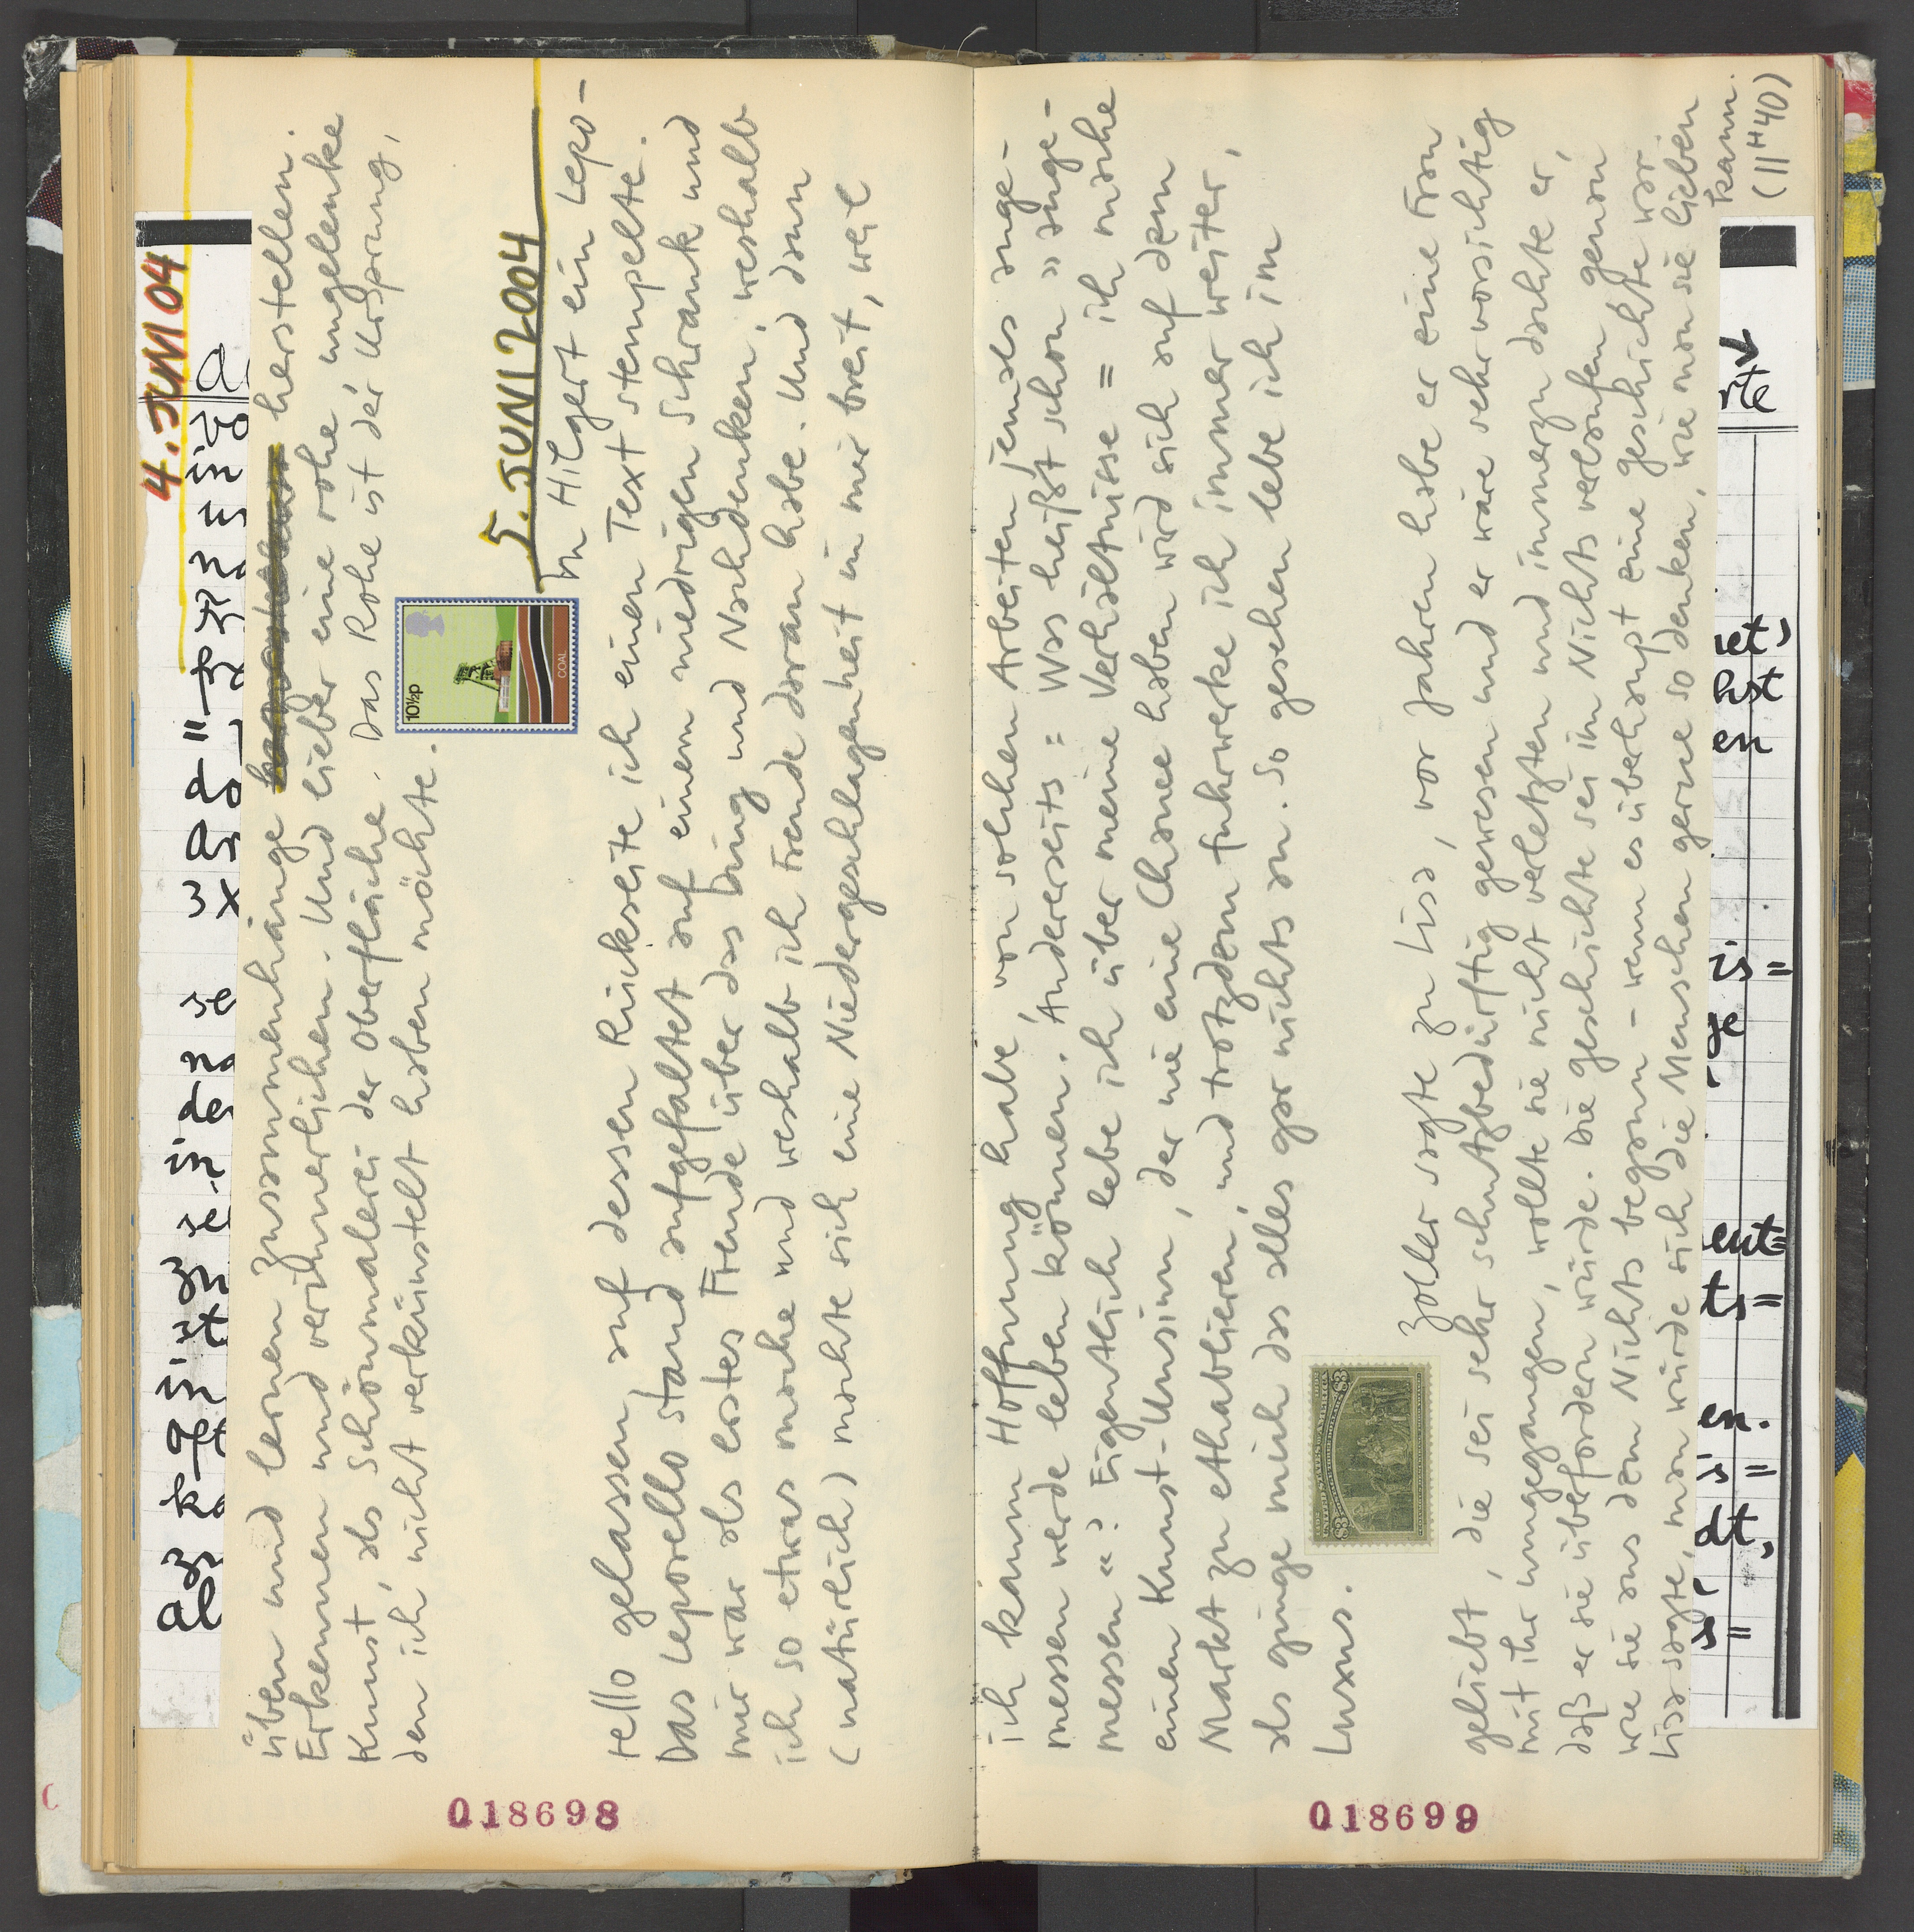 4. JUNI 04
üben und lernen Zusammenhänge herstellen.
Erkennen und verinnerlichen. Und lieber eine rohe, ungelenke
Kunst, als Schönmalerei der Oberfläche. Das Rohe ist der Ursprung,
den ich nicht verkünstelt haben möchte.
10½p
COAL
5. JUNI 2004
In Hilgert ein Lepo-
rello gelassen auf dessen Rückseite ich einen Text stempelte.
Das Leporello stand aufgefaltet auf einem niedrigen Schrank und
mir war als erstes Freude über das Ding und Nachdenken, weshalb
ich so etwas mache und weshalb ich Freude daran habe. Und dann
(natürlich) machte sich eine Niedergeschlagenheit in mir breit, weil
018698
ich kaum Hoffnung habe, von solchen Arbeiten jemals ange-
messen werde leben können. Andererseits = Was heißt schon »ange-
messen«? Eigentlich lebe ich über meine Verhältnisse = ich mache
einen Kunst-Unsinn, der nie eine Chance haben wird sich auf dem
Markt zu ethablieren, und trotzdem fuhrwerke ich immer weiter,
als ginge mich das alles gar nichts an. So gesehen lebe ich im
Luxus.
UNITED STATES OF AMERICA
$3 $3
Zoller sagte zu Lisa, vor Jahren habe er eine Frau
geliebt, die sei sehr schutzbedürftig gewesen und er wäre sehr vorsichtig
mit ihr umgegangen, wollte sie nicht verletzten und immerzu dachte er,
daß er sie überfordern würde. Die Geschichte sei im Nichts verlaufen genau
wie sie aus dem Nichts begann – wenn es überhaupt eine Geschichte war.
Lisa sagte, man würde sich die Menschen gerne so denken, wie man sie lieben
kann.
(11H40)
018699